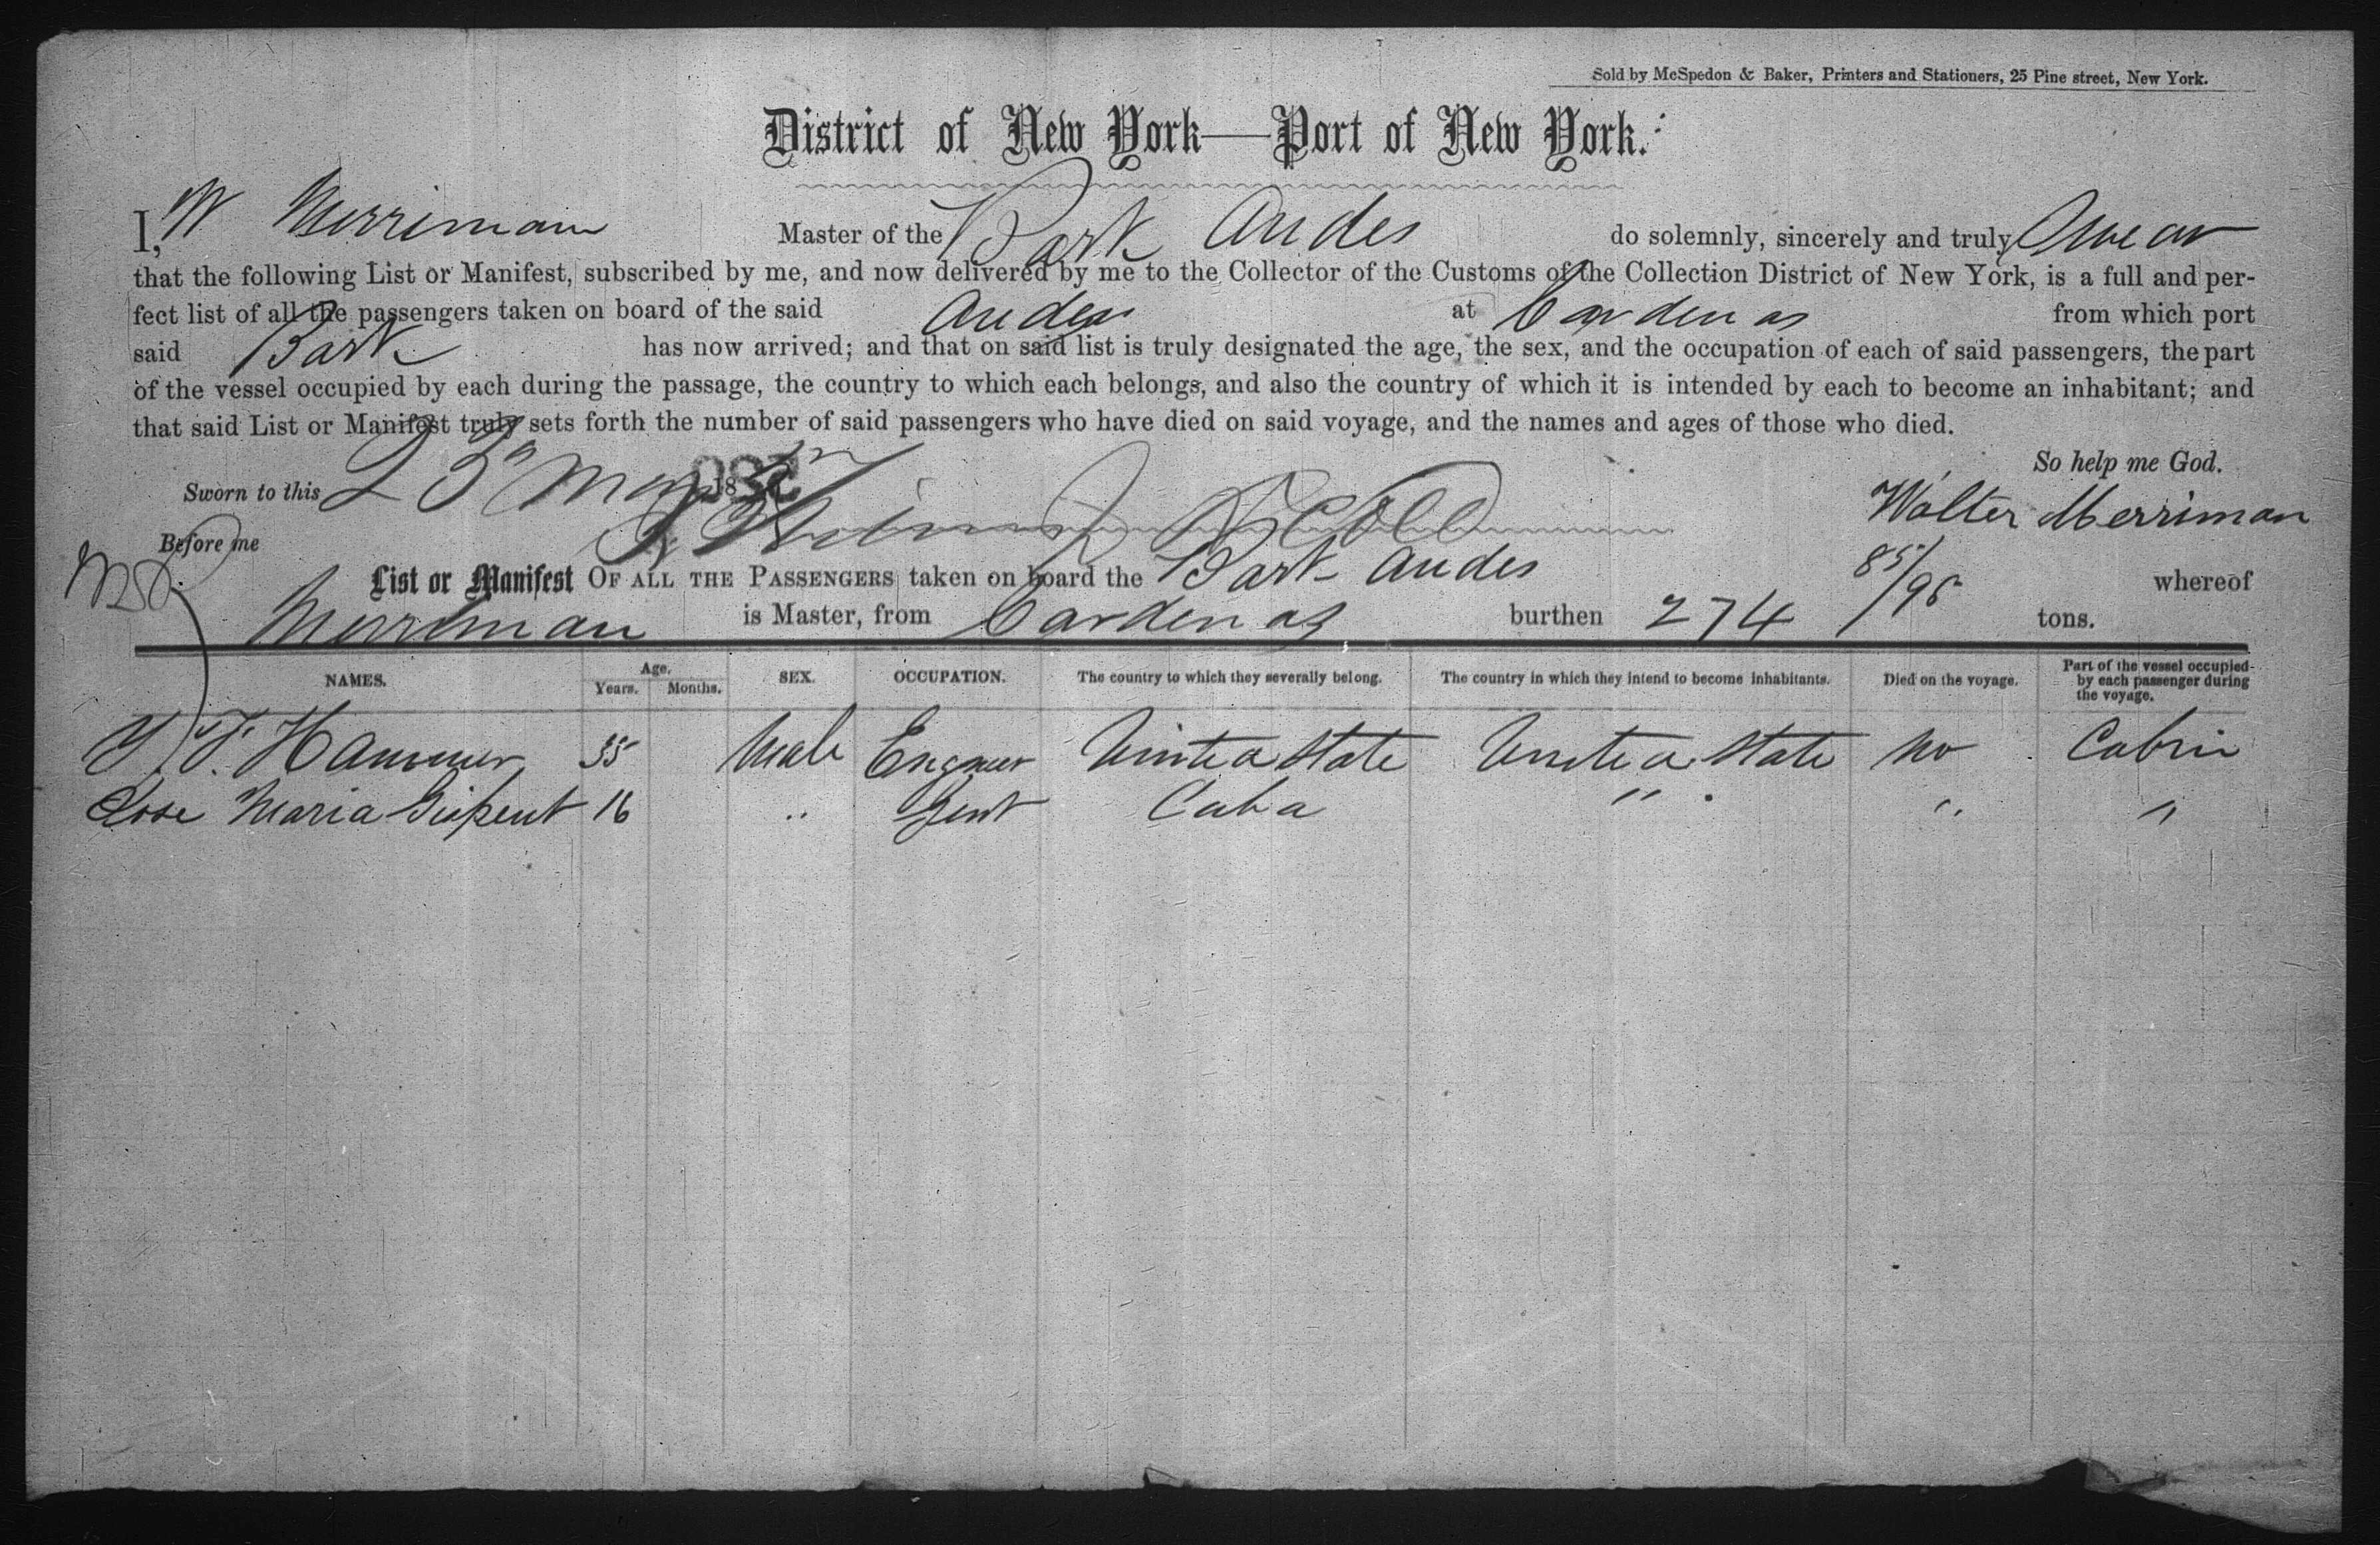 Sold by McSpedon & Baker, Printers and Stationers, 25 Pine street, New York.
District of New York—Port of New York.
I, W Merriman Master of the Bark Andes do solemnly, sincerely and truly Swear
that the following List or Manifest, subscribed by me, and now delivered by me to the Collector of the Customs of the Collection District of New York, is a full and per-
fect list of all the passengers taken on board of the said Andes at Cardenas from which port
said Bark has now arrived; and that on said list is truly designated the age, the sex, and the occupation of each of said passengers, the part
of the vessel occupied by each during the passage, the country to which each belongs, and also the country of which it is intended by each to become an inhabitant; and
that said List or Manifest truly sets forth the number of said passengers who have died on said voyage, and the names and ages of those who died.
So help me God.
Sworn to this 25 May 18
Walter Merriman
Before me
List or Manifest OF ALL THE PASSENGERS taken on board the Bark Andes whereof
Merriman is Master, from Cardenas burthen 274 85/95 tons.
NAMES. Age. Years. Months. SEX. OCCUPATION. The country to which they severally belong. The country in which they intend to become inhabitants. Died on the voyage. Part of the vessel occupied by each passenger during the voyage.
Male United State United State No Cabin
Jose Maria 16 " Gent Cuba " " "